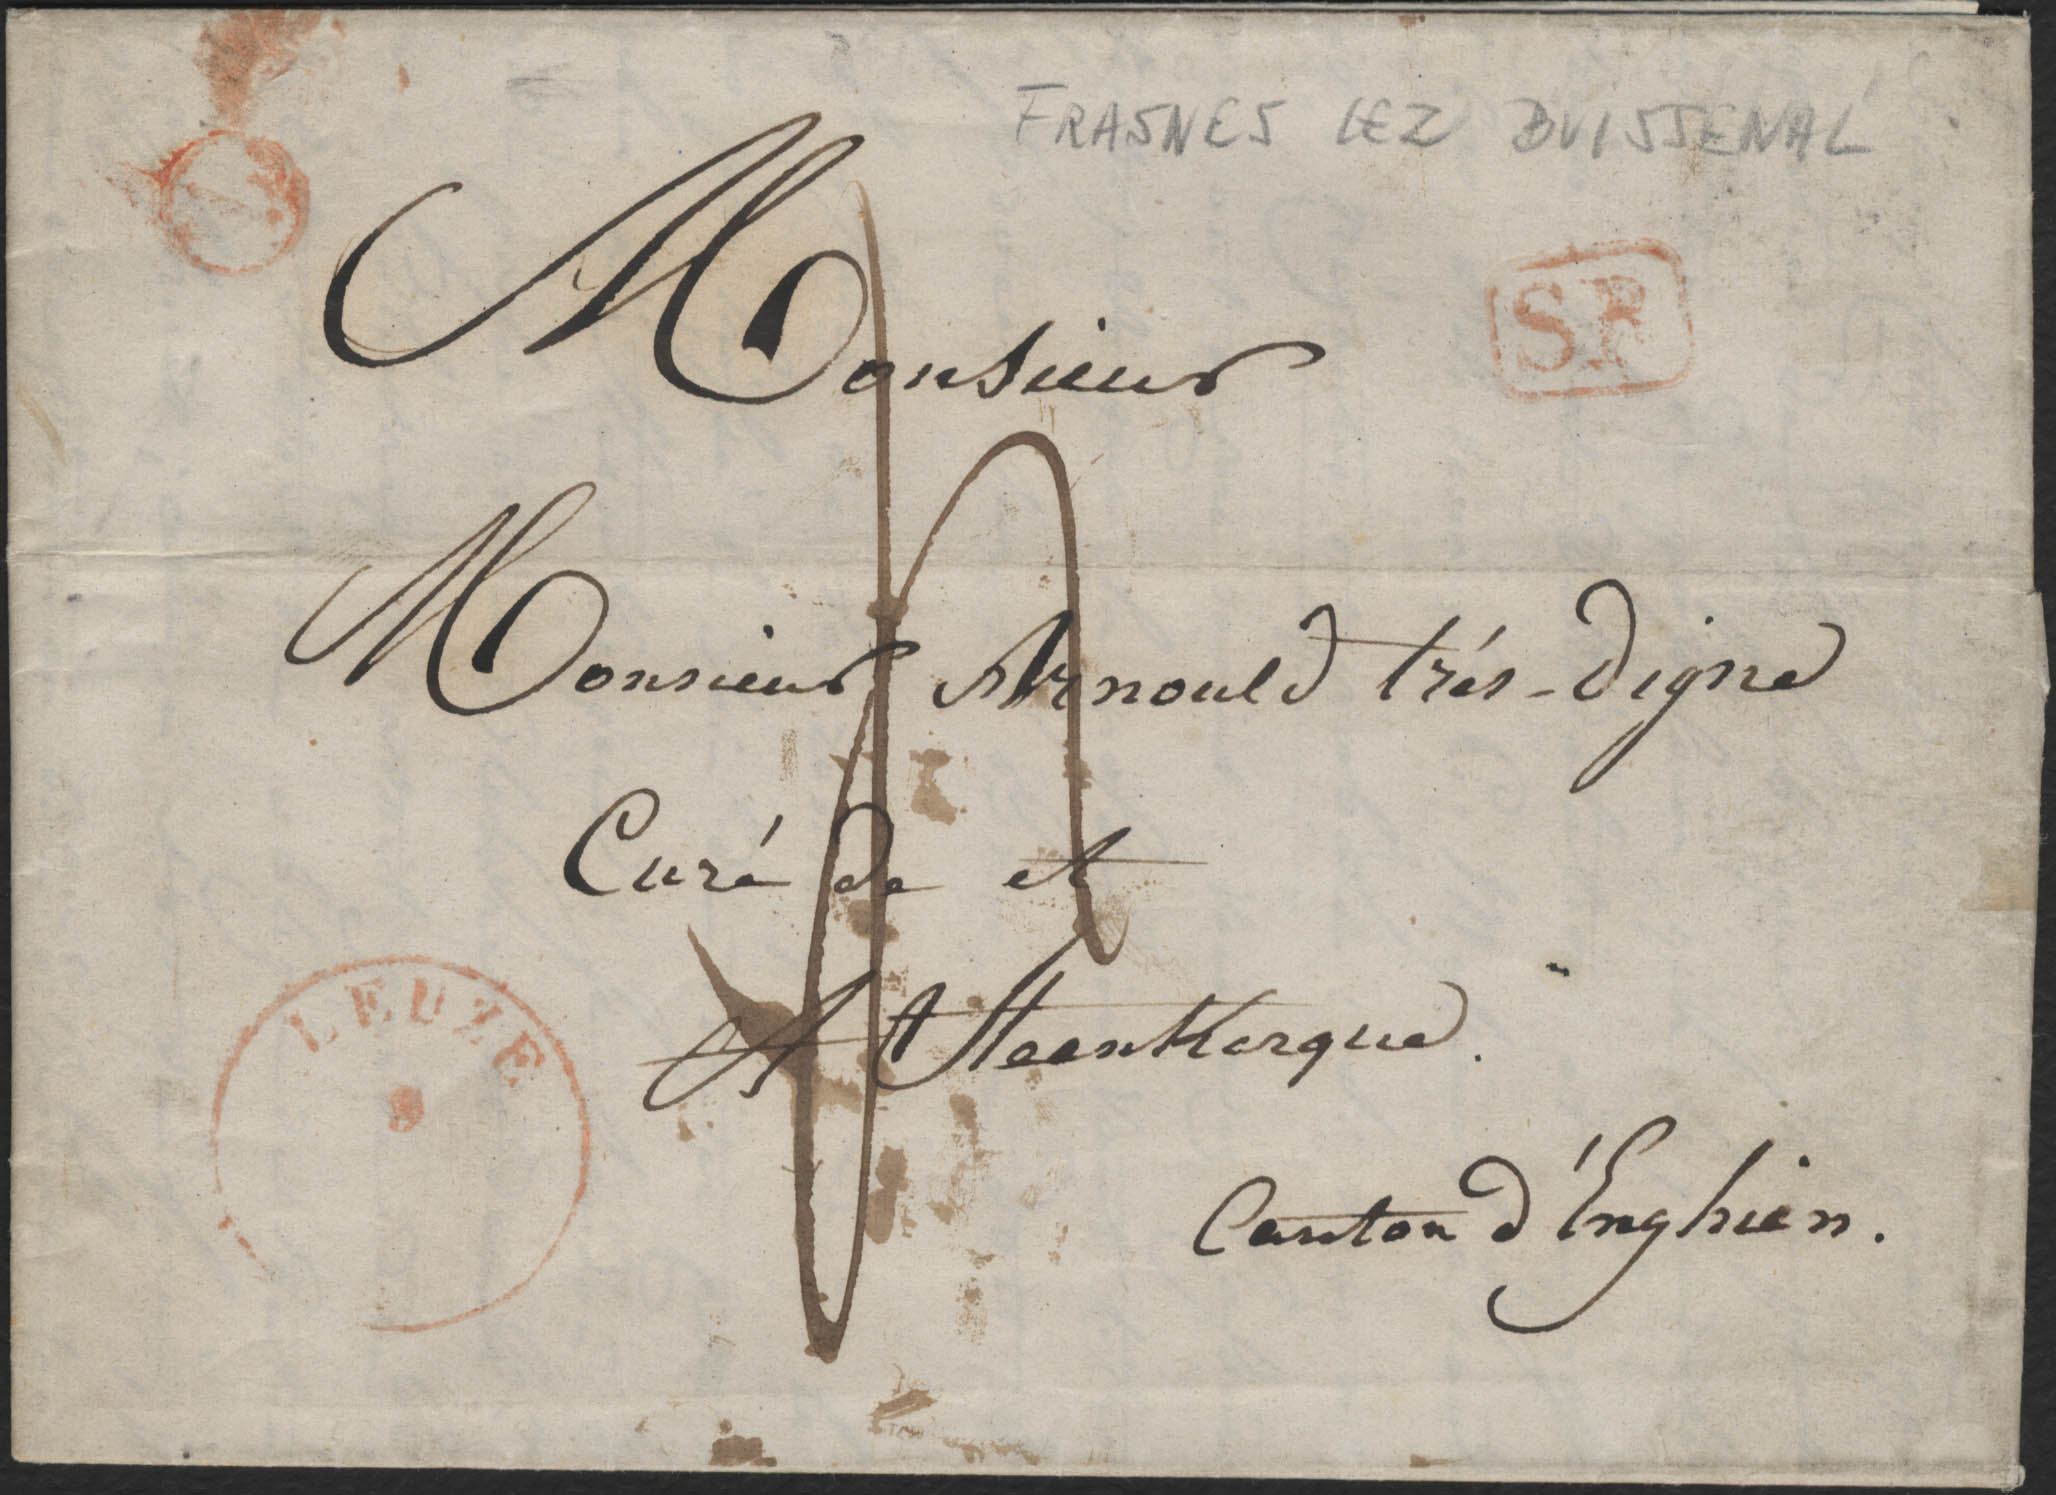 FRASNES LEZ BUISSENAL
S.R
Monsieur
Monsieur Arnould très-digne
Curé de et
A Steenkerque.
Canton d'Enghien.
LEUZE
9